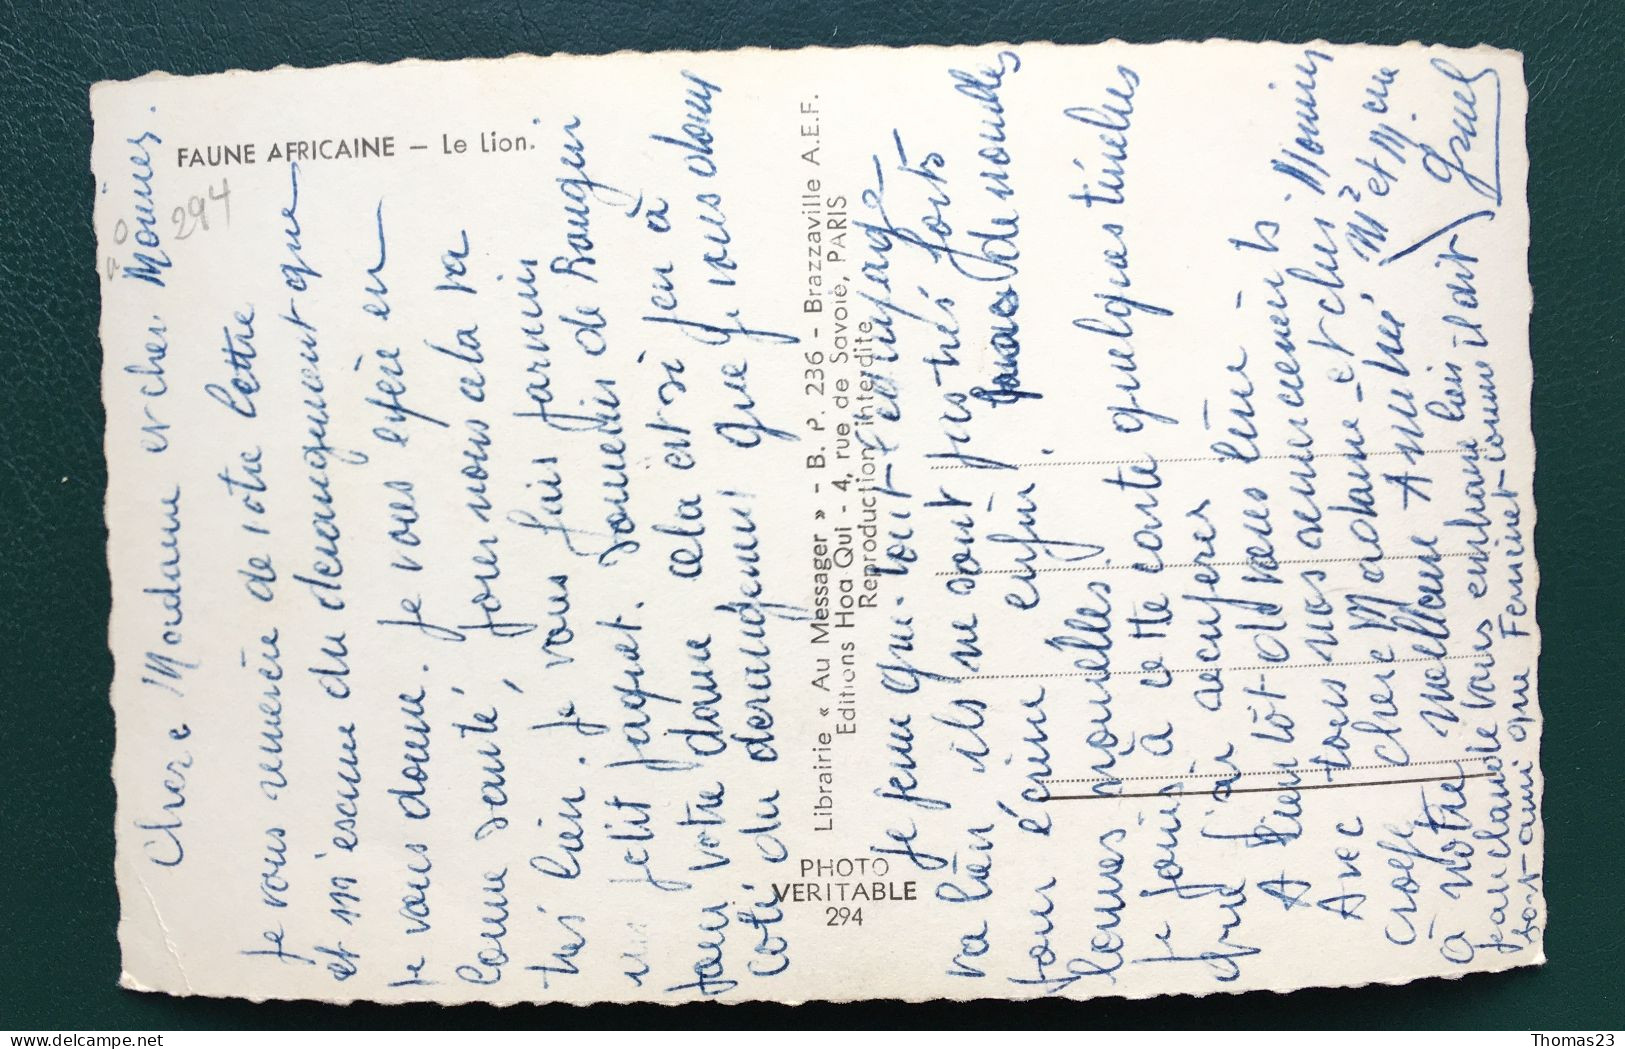 FAUNE AFRICAINE — Le Lion.
294
Chere Madame et cher Monies.
Je vous remercie de votre lettre
et m'escuse du derangement que
je vous donne. Je vous espère en
bonne santé, pour nous cela va
très bien. Je vous fais parvenir
un petit paquet. Souvenirs de Bangui
pour votre dame cela est si peu à
coté du derangement que je vous donne
Je pense que tout
va bien ils ne sont pas très forts
pour écrire enfin. de nouvelles
bonnes nouvelles.
Je joins à cette carte quelques timbres
que j'ai
A bientôt de vous lire
Avec tous nos remerciements.
croire chere Madame et cher Monies
à notre meilleure Amitié Mr et Mme
Jean claude vous embrasse
que
Librairie « Au Messager » - B. P. 236 - Brazzaville A.E.F.
Editions Hoa Qui - 4, rue de Savoie, PARIS
Reproduction interdite
PHOTO
VERITABLE
294
Thomas23